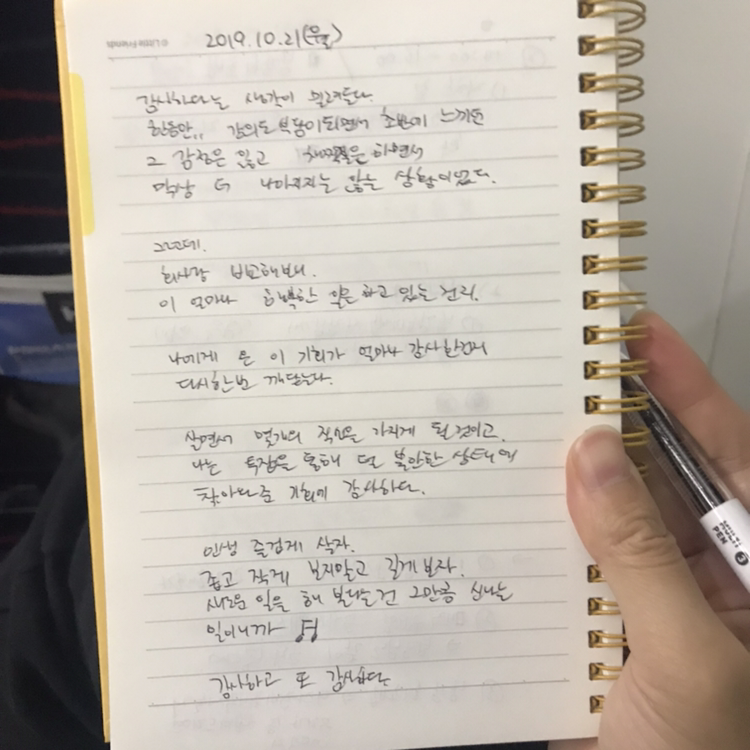 © Little Friends
2019.10.21(월)
감사하다는 생각이 밀려든다.
한동안.. 강의도 부담이 되면서 초반에 느끼던
그 감정은 잃고 하면서
막상 더 나아지지는 않는 상황이었다.
그런데.
회사랑 비교해보니.
이 얼마나 축복한 일을 하고 있는 건지.
나에게 온 이 기회가 얼마나 감사한건지
다시한번 깨닫는다.
살면서 몇개의 직업을 가지게 될 것이고.
나는 독감을 통해 덜 불안한 상태에
찾아와준 기회에 감사하다.
인생 즐겁게 살자.
좁고 작게 보지말고 길게 보자.
새로운 일을 해 본다는건 그만큼 신나는
일이니까 ♬
감사하고 또 감사하다
PEN